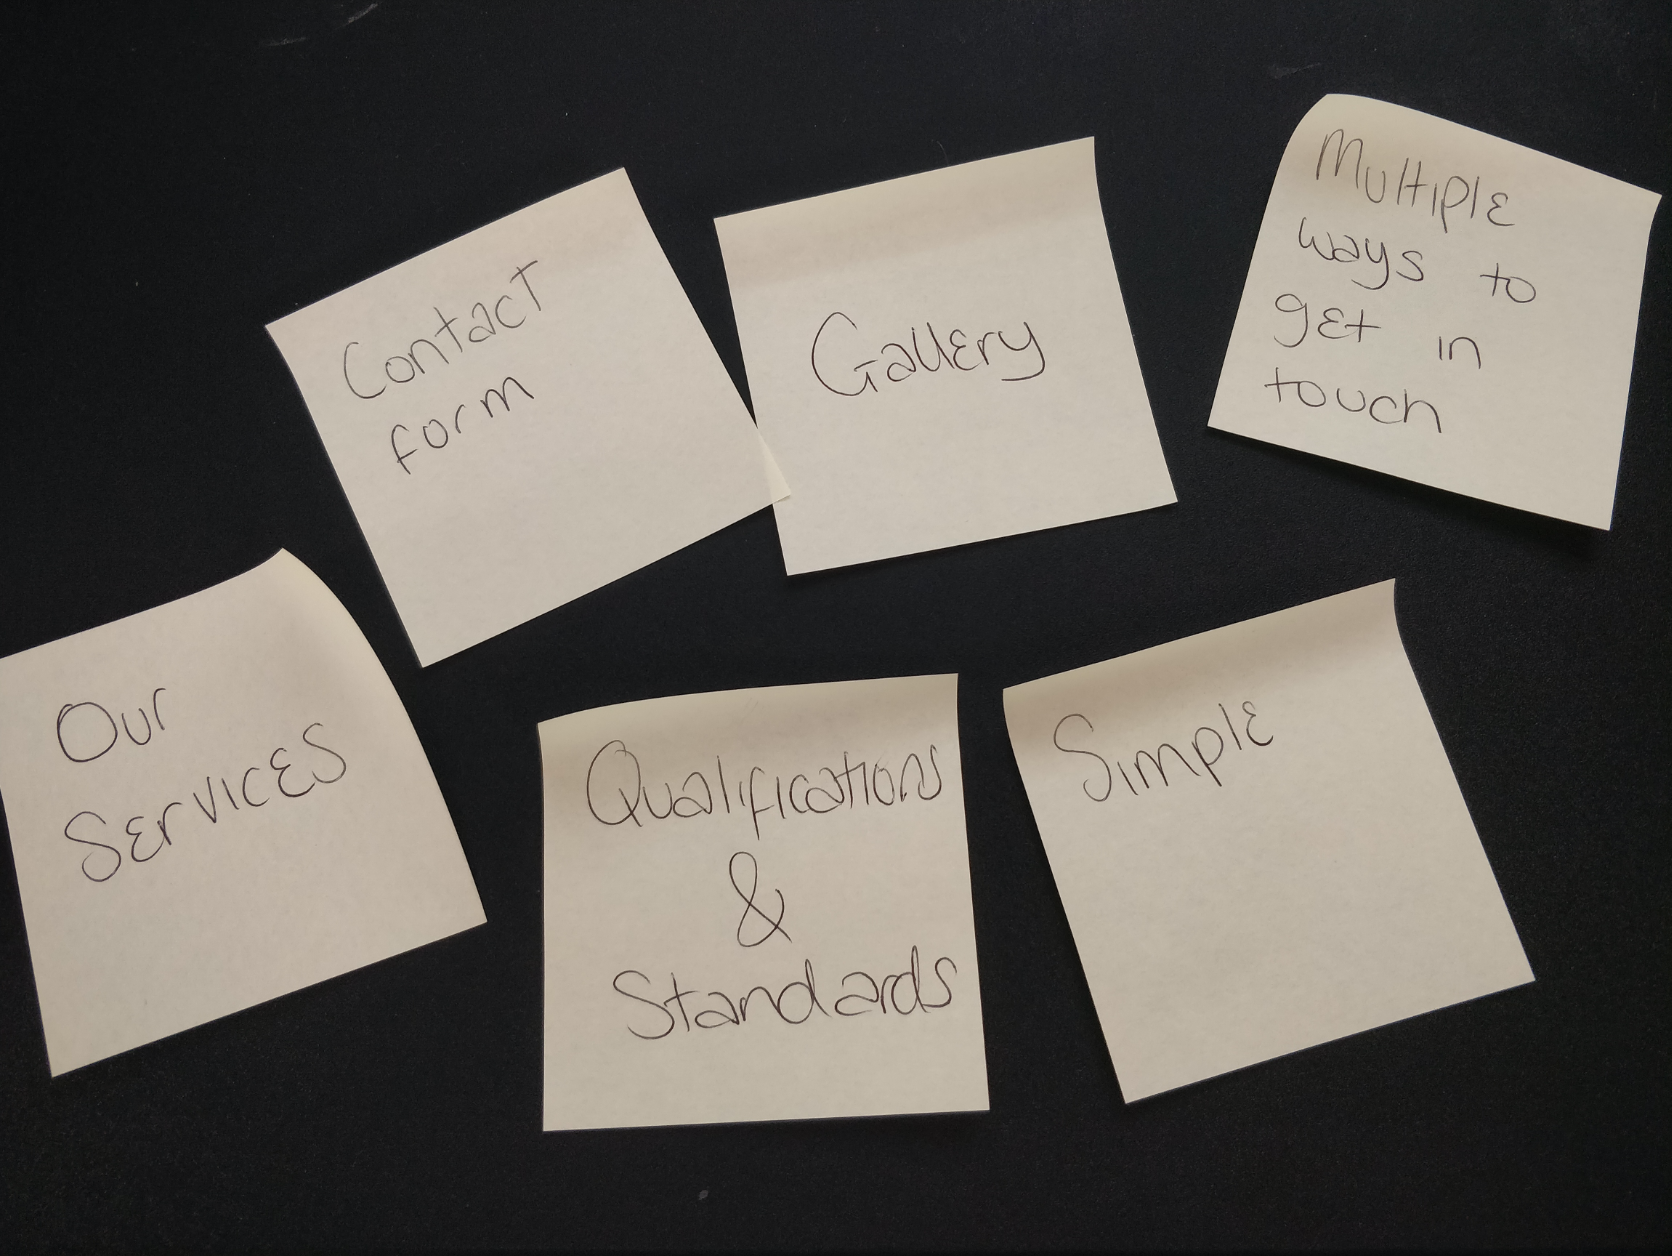 Contact
form
Gallery
Multiple
ways to
get in
touch
Our
Services
Qualifications
&
Standards
Simple